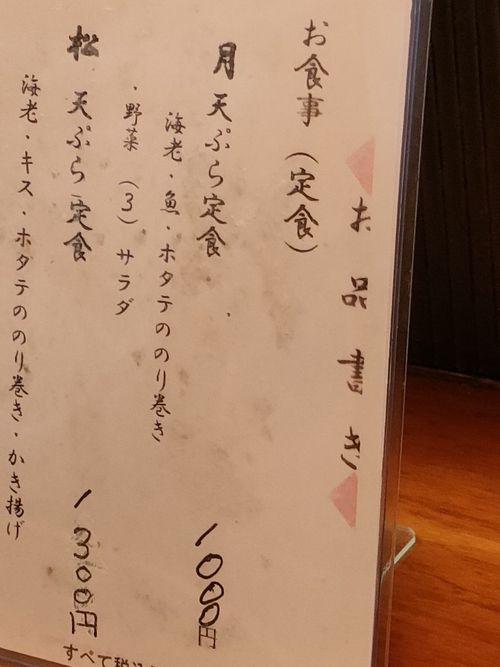 お品書き
お食事（定食）
月 天ぷら定食 1000円
海老・魚・ホタテののり巻き
・野菜（3）サラダ
松 天ぷら定食 1300円
海老・キス・ホタテののり巻き・かき揚げ
すべて税込